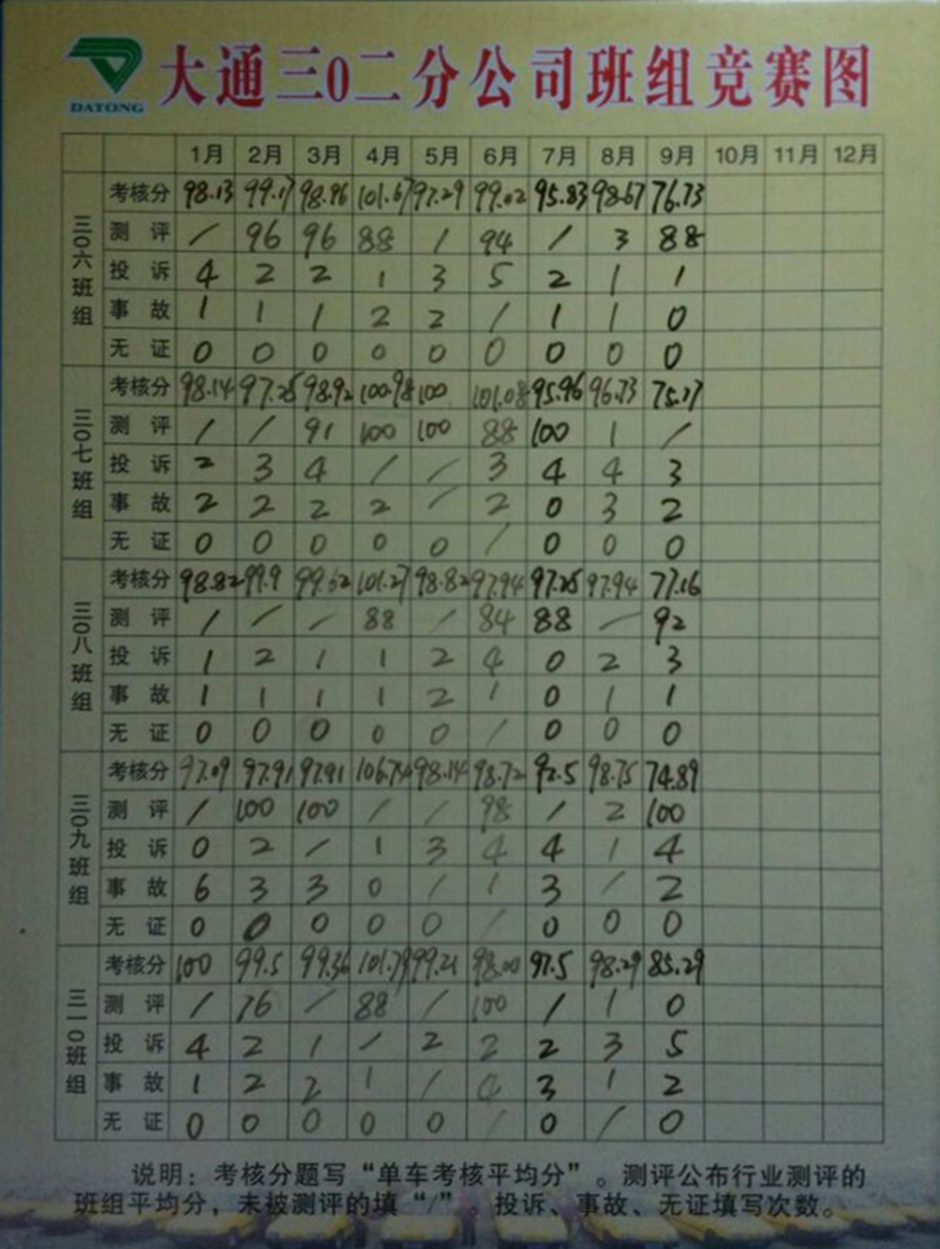 DATONG
大通三0二分公司班组竞赛图
1月 2月 3月 4月 5月 6月 7月 8月 9月 10月 11月 12月
三0六班组
考核分 98.13 99.17 98.96 101.67 97.29 99.02 95.83 98.67 76.73
测评 / 96 96 88 / 94 / 3 88
投诉 4 2 2 1 3 5 2 1 1
事故 1 1 1 2 2 / 1 1 0
无证 0 0 0 0 0 0 0 0 0
三0七班组
考核分 98.14 97.25 98.92 100.98 100 101.08 95.96 96.73
测评 / / 91 100 100 88 100 1 /
投诉 2 3 4 / / 3 4 4 3
事故 2 2 2 2 / 2 0 3 2
无证 0 0 0 0 0 / 0 0 0
三0八班组
考核分 98.82 99.9 101.27 98.82 97.94 97.25 97.94 77.16
测评 / / / 88 / 84 88 / 92
投诉 1 2 1 1 2 4 0 2 3
事故 1 1 1 1 2 1 0 1 1
无证 0 0 0 0 0 / 0 0 0
三0九班组
考核分 97.09 97.91 97.91 106.74 98.14 98.72 92.5 98.75 74.89
测评 / 100 100 / / 98 / 2 100
投诉 0 2 / 1 3 4 4 1 4
事故 6 3 3 0 / 1 3 / 2
无证 0 0 0 0 0 / 0 0 0
三一0班组
考核分 100 99.5 99.36 101.79 99.21 98.00 97.5 98.29 85.29
测评 / 76 / 88 / 100 / 1 0
投诉 4 2 1 / 2 2 2 3 5
事故 1 2 2 1 / 4 3 1 2
无证 0 0 0 0 0 / 0 / 0
说明：考核分题写“单车考核平均分”。测评公布行业测评的
班组平均分，未被测评的填“/”。投诉、事故、无证填写次数。